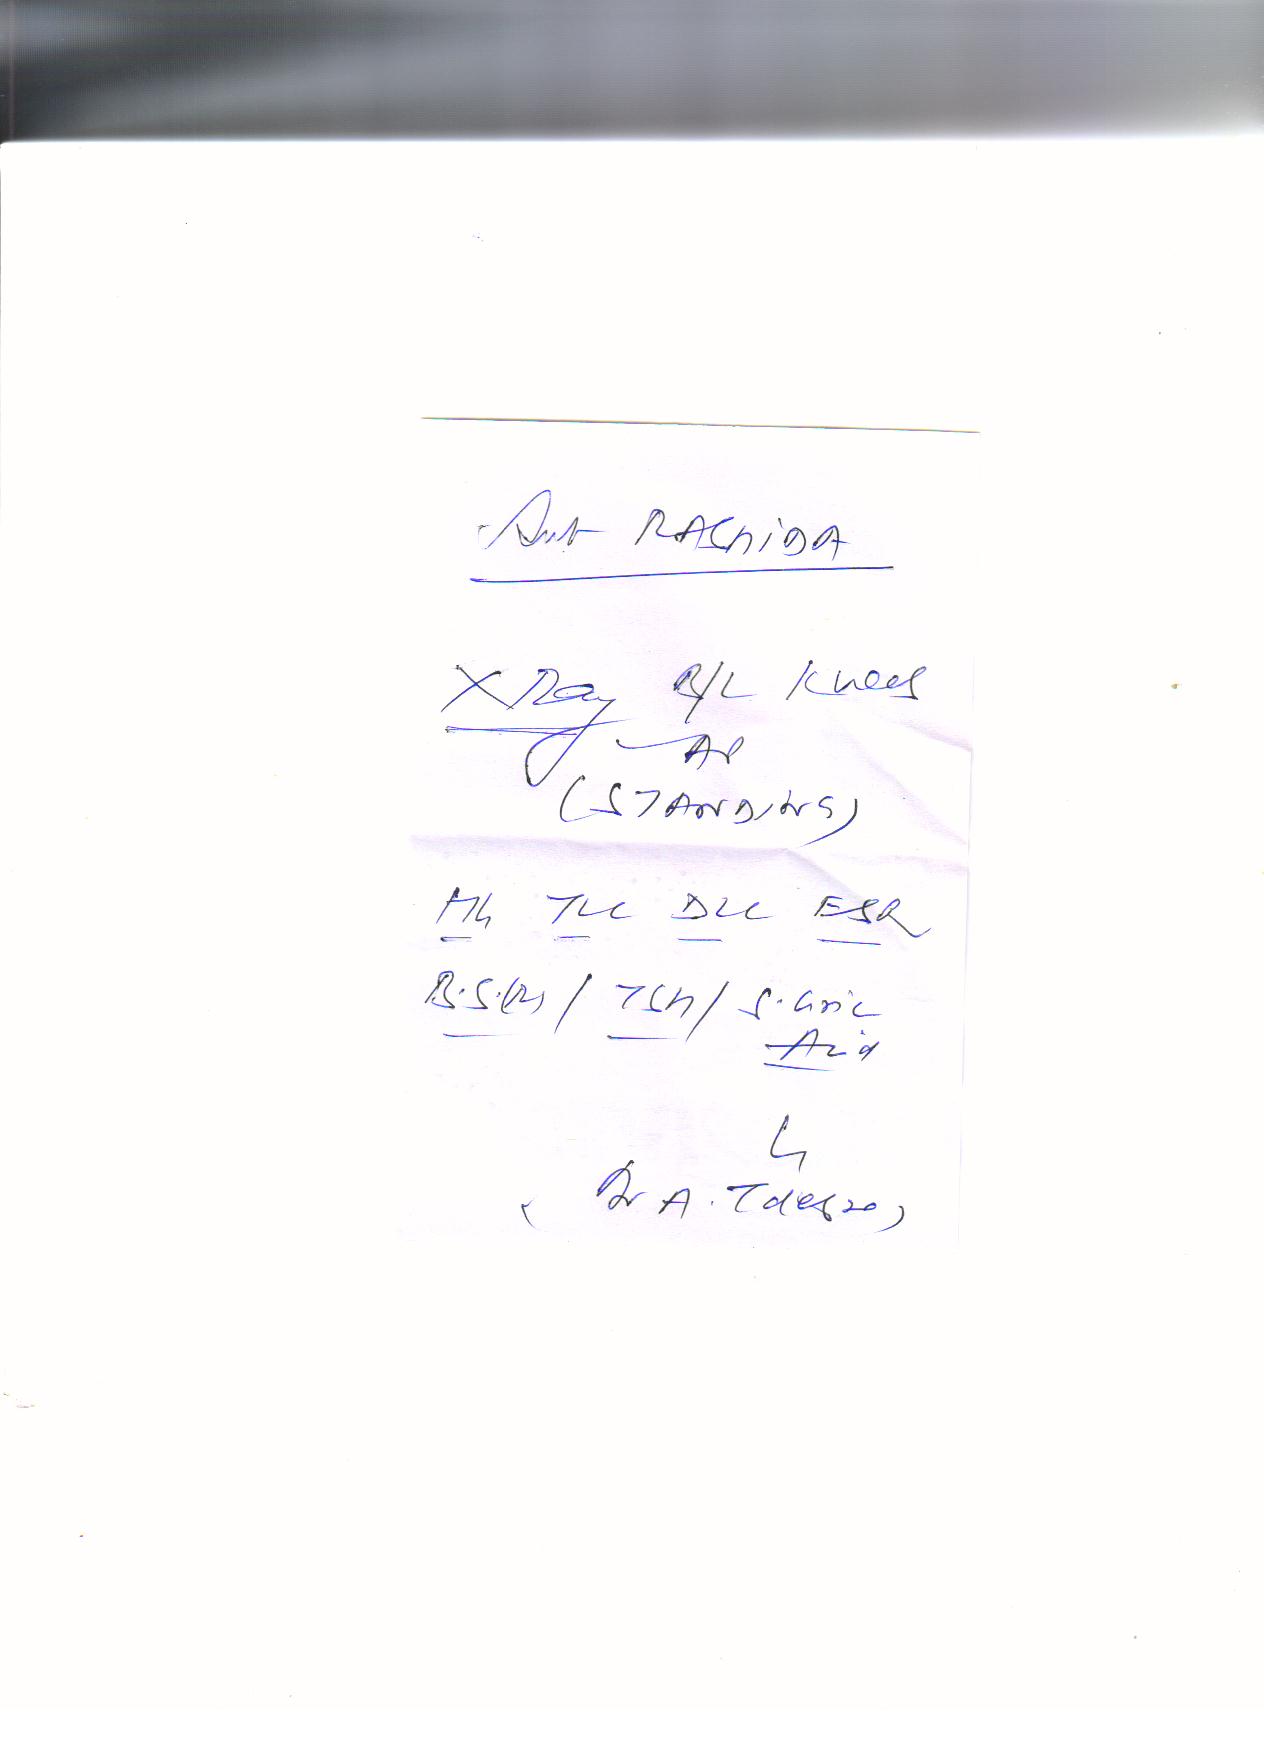 RASHIDA
X Ray B/L Knees
AP
(STANDING)
Hb TLC DLC ESR
B.S.(R) / TSH / S. Uric
Acid
Dr A.